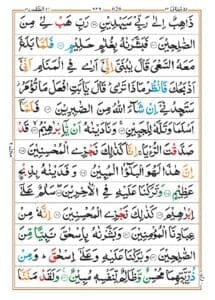 ذَاهِبٌ إِلَىٰ رَبِّي سَيَهْدِينِ ۝ رَبِّ هَبْ لِي مِنَ
الصَّالِحِينَ ۝ فَبَشَّرْنَاهُ بِغُلَامٍ حَلِيمٍ ۝ فَلَمَّا بَلَغَ
مَعَهُ السَّعْيَ قَالَ يَا بُنَيَّ إِنِّي أَرَىٰ فِي الْمَنَامِ أَنِّي
أَذْبَحُكَ فَانْظُرْ مَاذَا تَرَىٰ ۚ قَالَ يَا أَبَتِ افْعَلْ مَا تُؤْمَرُ ۖ
سَتَجِدُنِي إِنْ شَاءَ اللَّهُ مِنَ الصَّابِرِينَ ۝ فَلَمَّا
أَسْلَمَا وَتَلَّهُ لِلْجَبِينِ ۝ وَنَادَيْنَاهُ أَنْ يَا إِبْرَاهِيمُ ۝ قَدْ
صَدَّقْتَ الرُّؤْيَا ۚ إِنَّا كَذَٰلِكَ نَجْزِي الْمُحْسِنِينَ ۝
إِنَّ هَٰذَا لَهُوَ الْبَلَاءُ الْمُبِينُ ۝ وَفَدَيْنَاهُ بِذِبْحٍ
عَظِيمٍ ۝ وَتَرَكْنَا عَلَيْهِ فِي الْآخِرِينَ ۝ سَلَامٌ عَلَىٰ
إِبْرَاهِيمَ ۝ كَذَٰلِكَ نَجْزِي الْمُحْسِنِينَ ۝ إِنَّهُ مِنْ
عِبَادِنَا الْمُؤْمِنِينَ ۝ وَبَشَّرْنَاهُ بِإِسْحَاقَ نَبِيًّا مِنَ
الصَّالِحِينَ ۝ وَبَارَكْنَا عَلَيْهِ وَعَلَىٰ إِسْحَاقَ ۚ وَمِنْ
ذُرِّيَّتِهِمَا مُحْسِنٌ وَظَالِمٌ لِنَفْسِهِ مُبِينٌ ۝ وَلَقَدْ مَنَنَّا